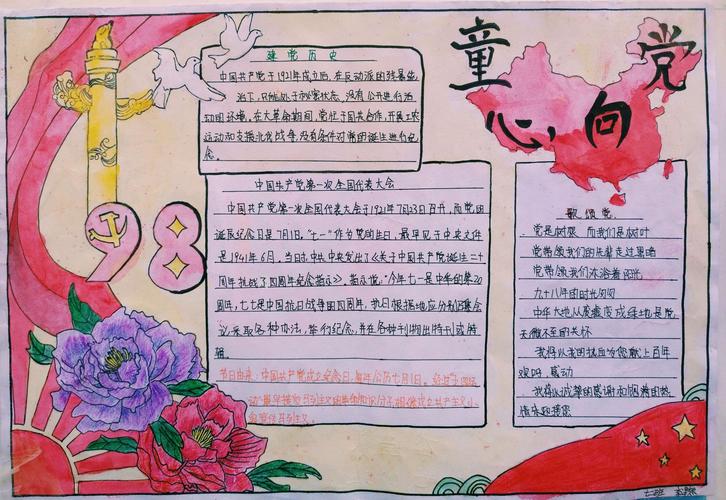 童心向党
建党历史
中国共产党于1921年成立后，在反动派的残暴统
治下，只能处于秘密状态，没有公开进行活
动的环境。在大革命期间，党忙于国共合作，开展工农
运动和支援北伐战争，没有条件对党的诞生进行纪
念。
中国共产党第一次全国代表大会
中国共产党第一次全国代表大会于1921年7月23日召开，而党的
诞辰纪念日是7月1日。"七一"作为党的生日，最早见于中央文件
是1941年6月。当时，中共中央发出了《关于中国共产党诞生二十
周年抗战了四周年纪念指示》。指示说："今年七一是中共的第20
周年，七七是中国抗日战争的四周年，抗日根据地应分别召集会
议，采取各种办法，举行纪念，并在各种刊物出特刊或特
辑。
节日由来：中国共产党成立纪念日，每年公历七月1日。
98
歌颂党
党是树根，而我们是树叶
党带领我们的先辈走过黑暗
党带领我们沐浴着阳光
九十八年的时光匆匆
中华大地从废墟变成绿地是党
无微不至的关怀
我将以我的热血为您献上百年
欢呼，感动
我将以诚挚的感谢和满满的热
七班